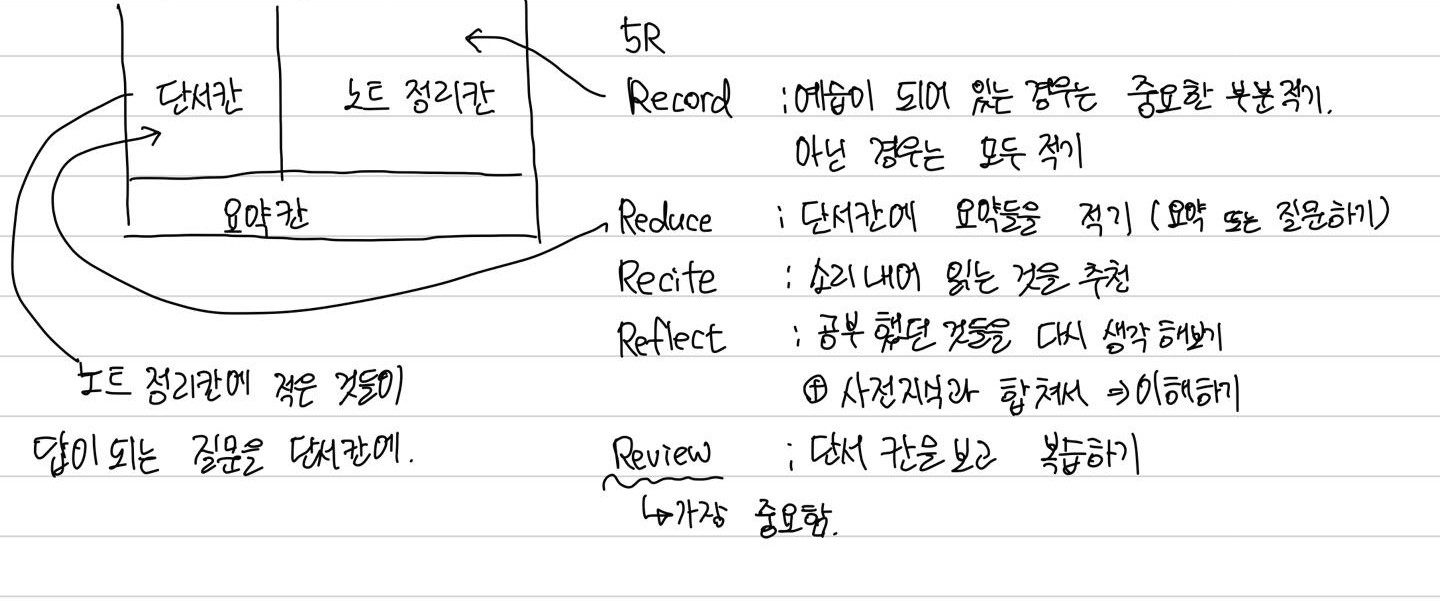 단서칸
노트 정리칸
요약칸
노트 정리칸에 적은 것들이
답이 되는 질문을 단서칸에.
5R
Record : 예습이 되어 있는 경우는 중요한 부분적기.
아닌 경우는 모두 적기
Reduce : 단서칸에 요약들을 적기 (요약 또는 질문하기)
Recite : 소리내어 읽는 것을 추천
Reflect : 공부 했던 것들을 다시 생각해보기
⊕ 사전지식과 합쳐서 ⇒이해하기
Review : 단서 칸을 보고 복습하기
↳가장 중요함.